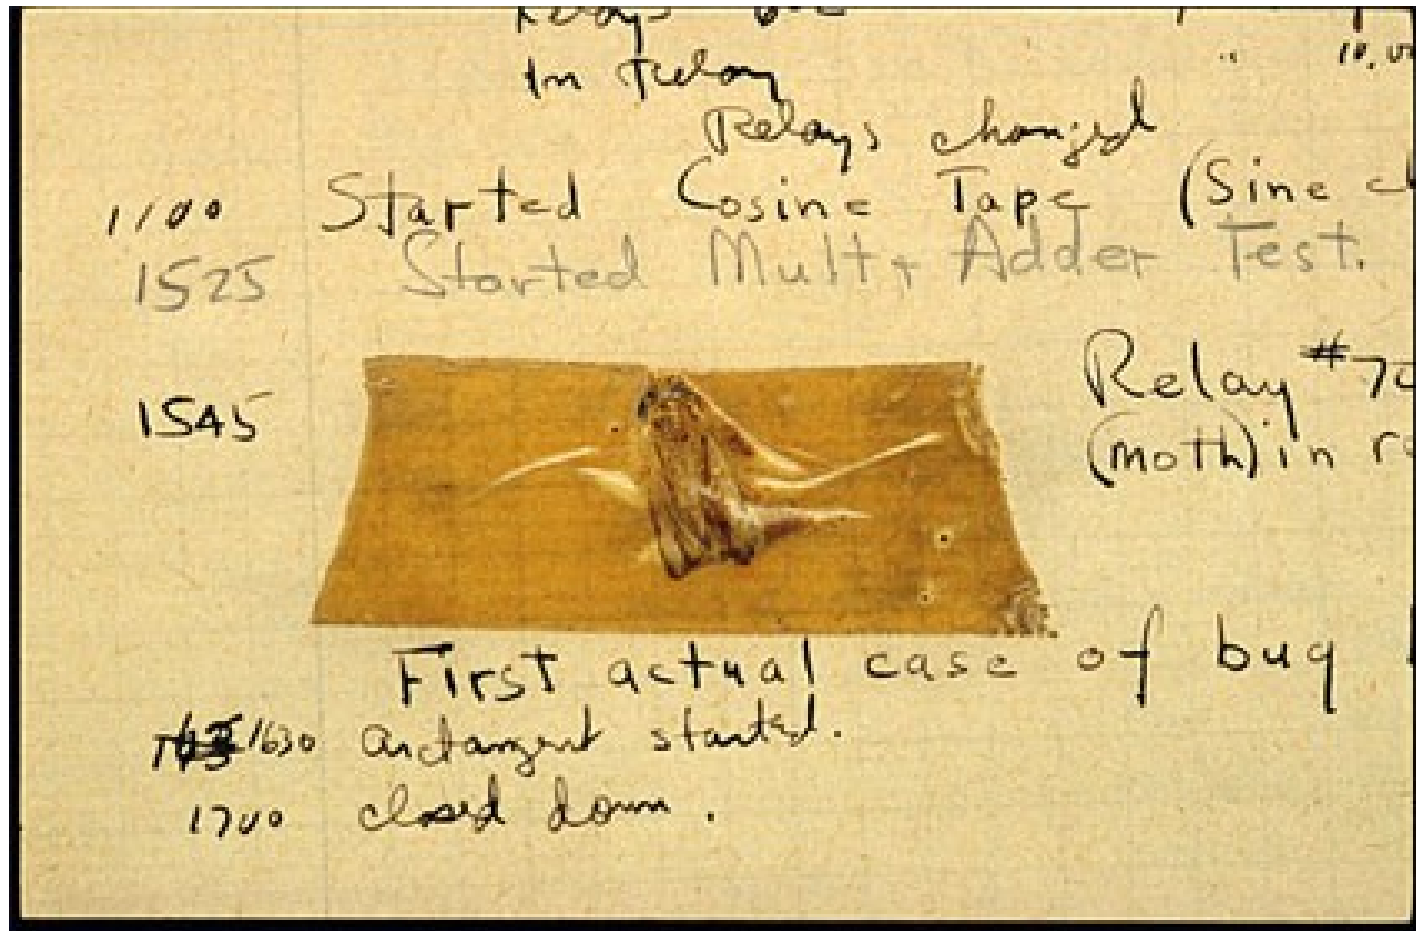 Relays
In Relay
10,00
Relays changed
1100 Started Cosine Tape (Sine
1525 Started Mult+ Adder Test.
1545
Relay #70
(moth) in
First actual case of bug
1630 arctangent started.
1700 closed down.